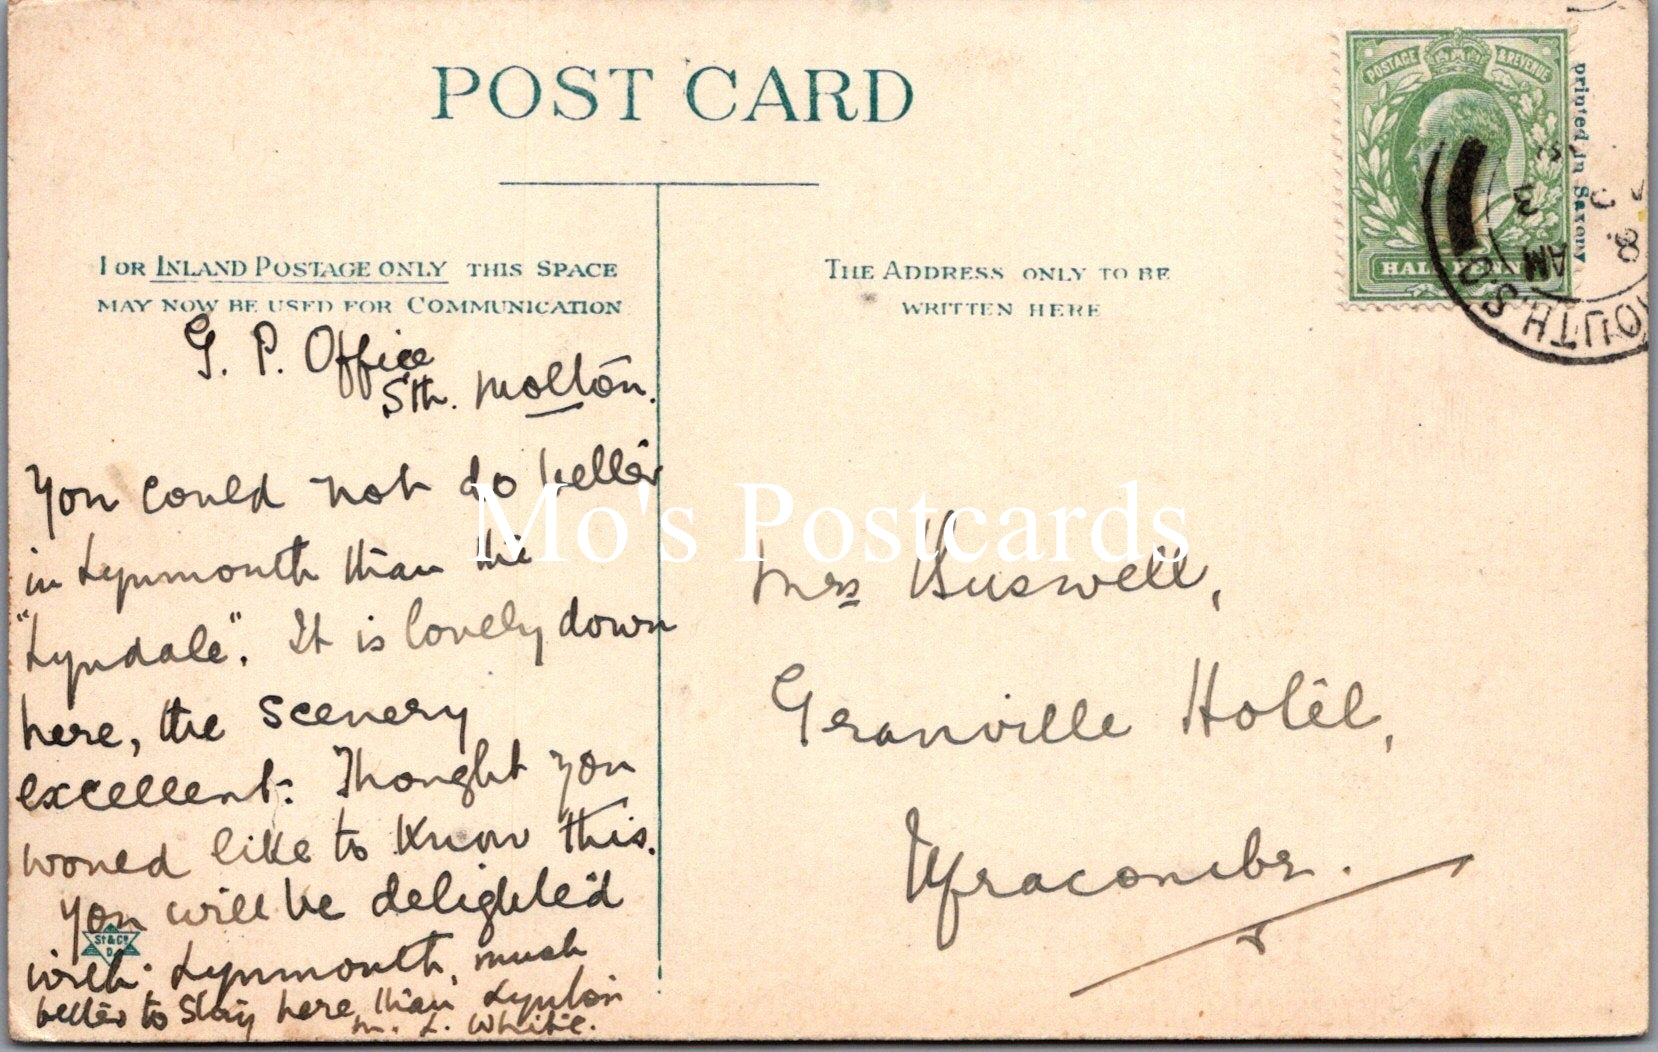 POST CARD
printed in Saxony
POSTAGE & REVENUE
HALF PENNY
3 AM
8
OUTH S.O
FOR INLAND POSTAGE ONLY THIS SPACE
MAY NOW BE USED FOR COMMUNICATION
THE ADDRESS ONLY TO BE
WRITTEN HERE
G. P. Office
Sth. Molton.
You could not do better
in Lynmouth than the
"Lyndale". It is lovely down
here, the scenery
excellent. Thought you
would like to know this.
You will be delighted
with Lynmouth, much
better to stay here than Lynton
M. L. White.
St & Co
D
Mrs Buswell,
Granville Hotel,
Ilfracombe.
Mo's Postcards